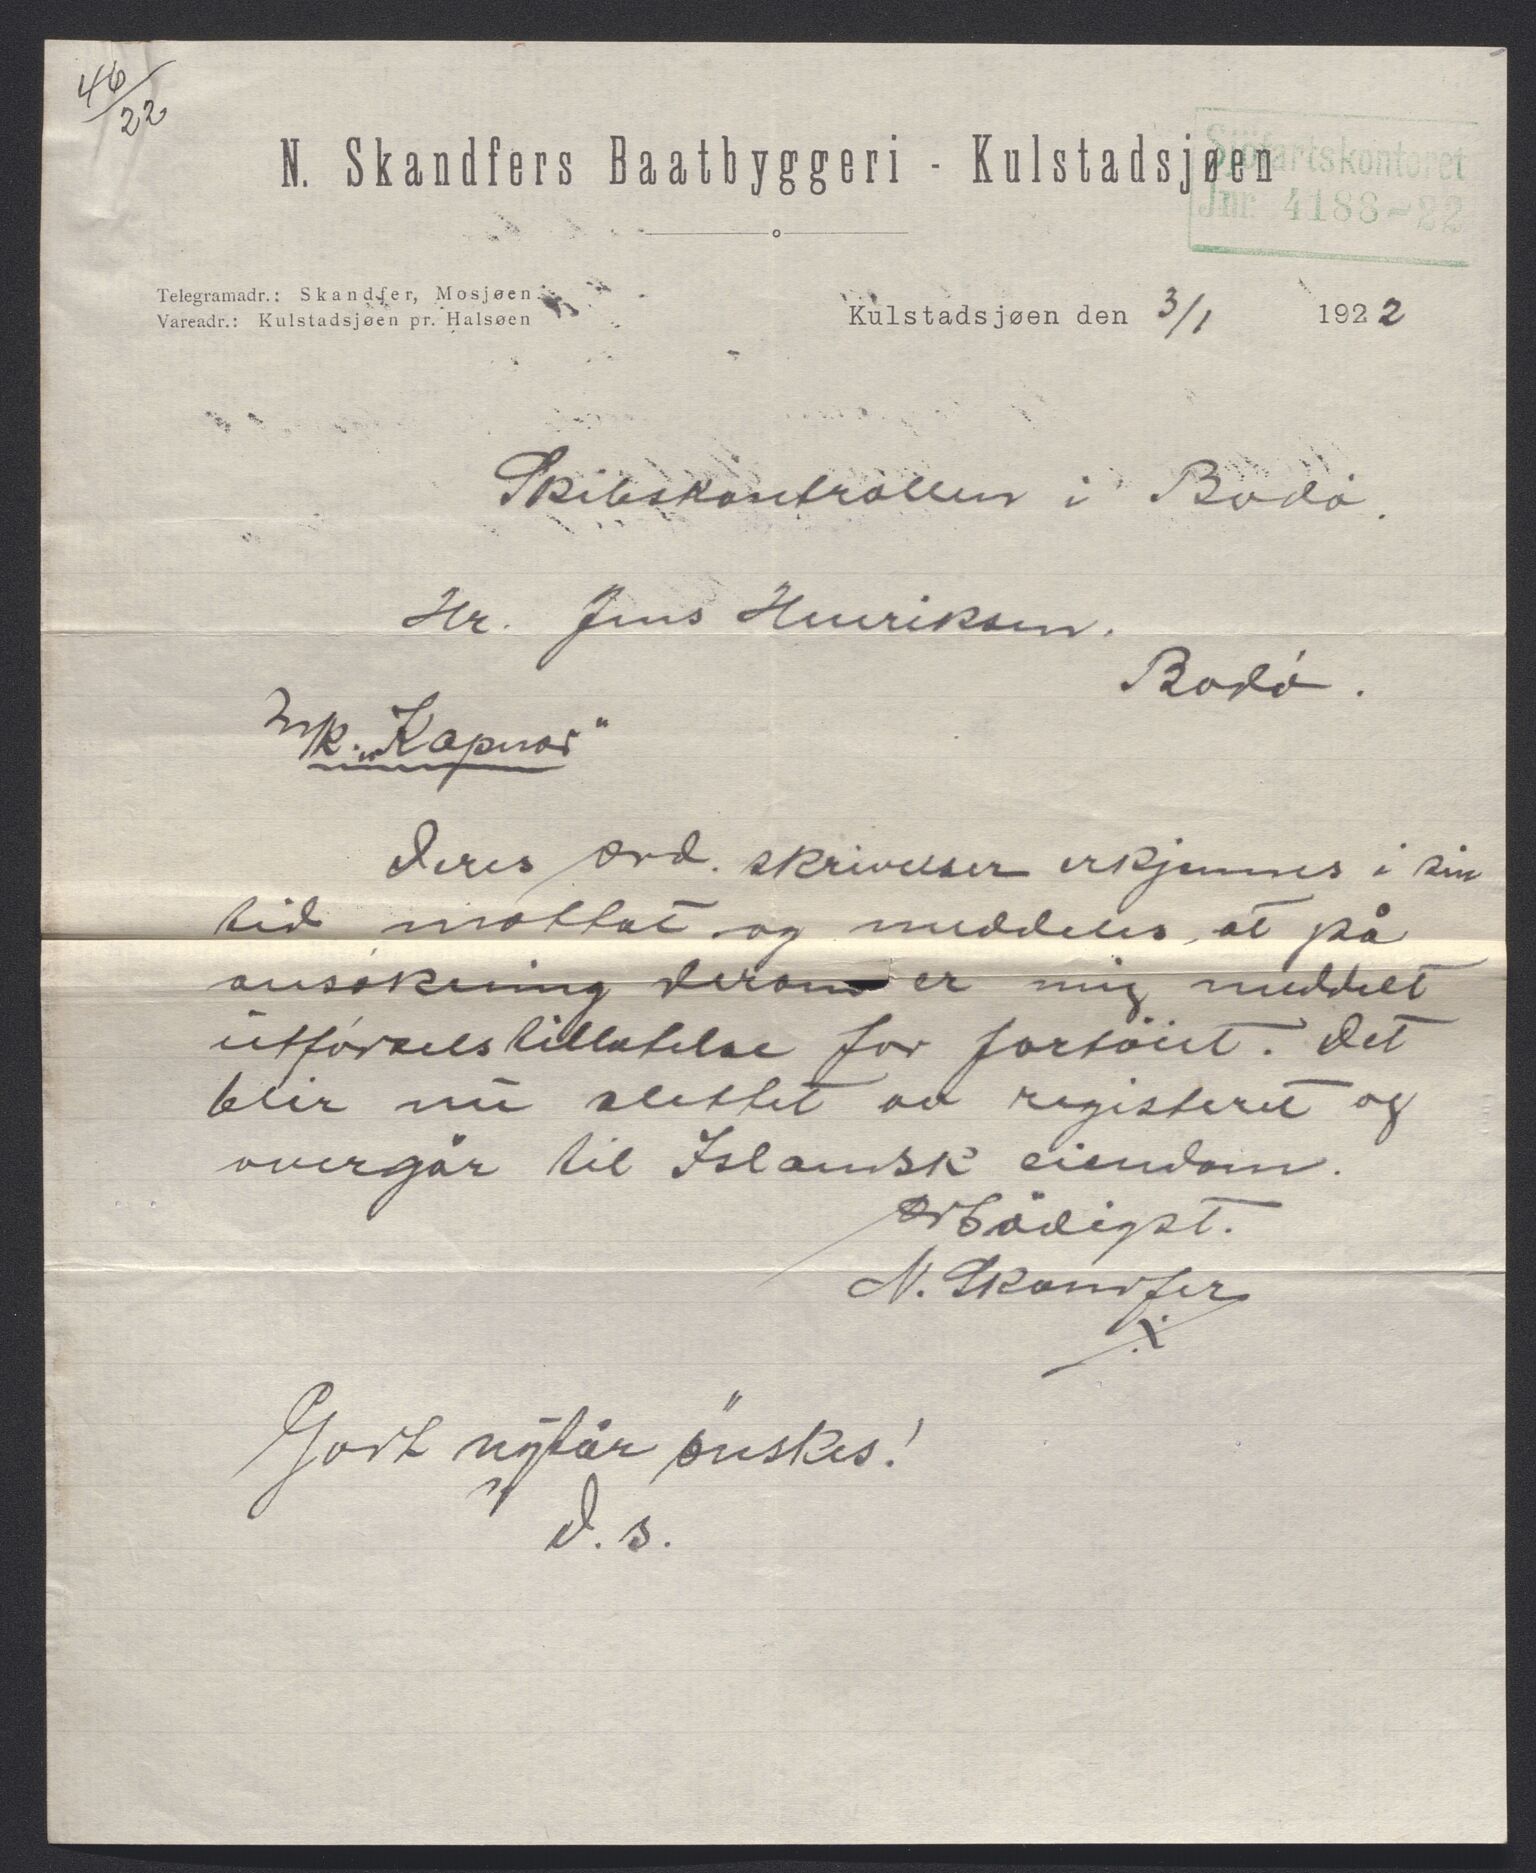 46/22
N. Skandfers Baatbyggeri - Kulstadsjøen
Sjøfartskontoret
Jnr. 4188-22
Telegramadr.: Skandfer, Mosjøen.
Vareadr.: Kulstadsjøen pr. Halsøen
Kulstadsjøen den 3/1 1922
Skibskontrollen i Bodø.
Hr. Jens Henriksen.
Bodø.
Mk. „Kapnor"
Deres ærd. skrivelser erkjennes i sin
tid mottat og meddeles, at på
ansøkning derom er mig meddelt
utførselstillatelse for fartöiet. Det
blir nu slettet av registeret og
overgår til Islandsk eiendom.
Ærbödigst.
N. Skandfer
Godt nytår önskes!
D. s.